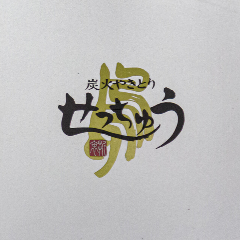 炭火やきとり
せっちゅう